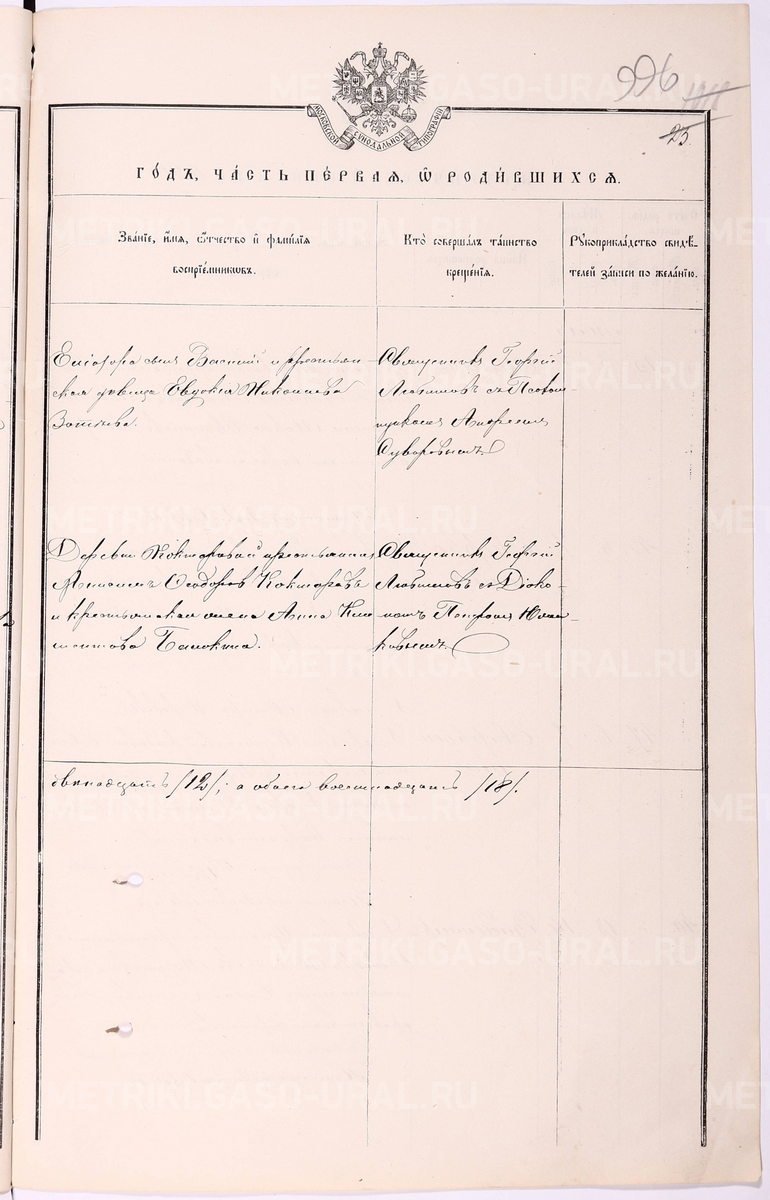 996
25.
МОСКОВСКОЙ СѴНОДАЛЬНОЙ ТИПОГРАФІИ
ГО́ДЪ, ЧА́СТЬ ПЕ́РВАЯ, Ѡ РОДИ́ВШИХСЯ.
Зва́нїе, и́мѧ, ѻ҆́тчество и҆ фами́лїѧ
воспрїе́мникѡвъ.
Кто̀ соверша́лъ та́инство
креще́нїѧ.
Рꙋкоприкла́дство свидѣ́-
телей за́писи по жела́нїю.
сынъ Василій и крестьян-
ская дѣвица Евдокія Николаева
Священникъ Георгій
Любимовъ съ Псалом-
щикомъ Андреемъ
Суворовымъ
Деревни крестьянинъ
Ѳеодоровъ
и крестьянская жена Анна Кли-
ментова
Священникъ Георгій
Любимовъ съ Діако-
номъ
ковымъ
двѣнадцать /12/; а обоего восемнадцать /18/.
METRIKI.GASO-URAL.RU